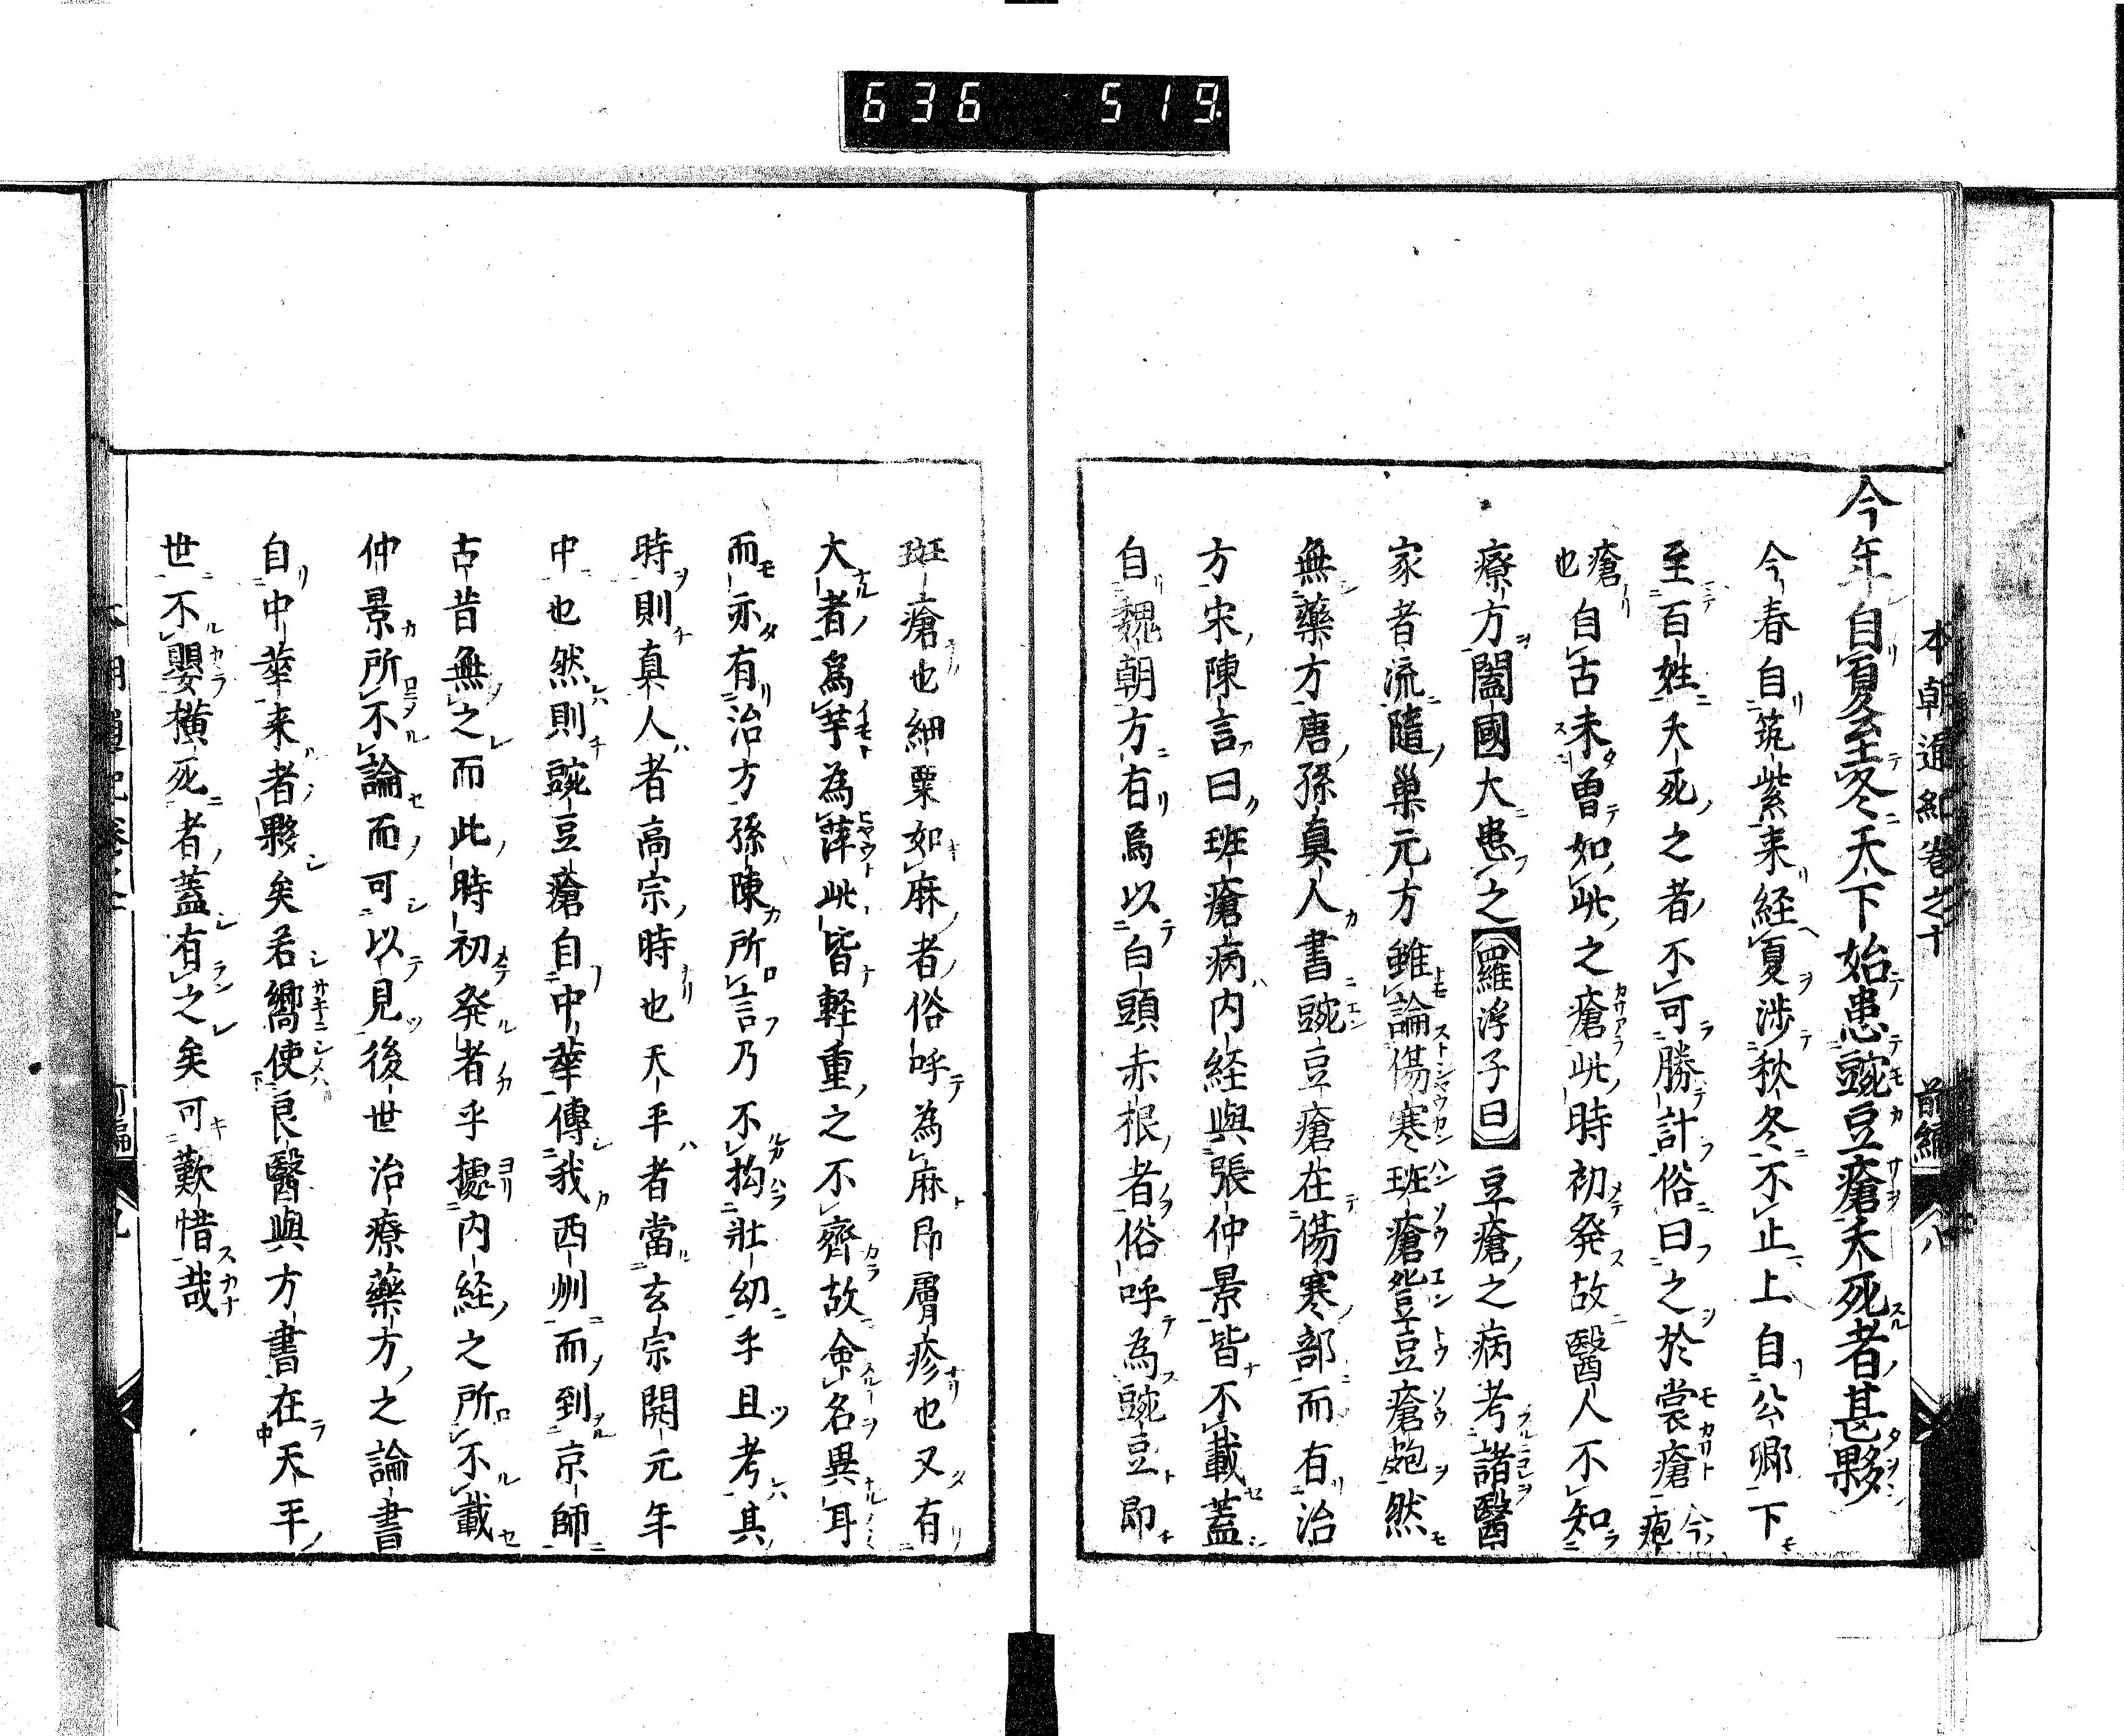 636 519
本朝通紀卷之十 前編 八
今年自夏至冬天下始患豌豆瘡夭死者甚夥
今春自筑紫来経夏渉秋冬不止上自公卿下
至百姓夭死之者不可勝計俗曰之於裳瘡今疱
瘡也自古未曽如此之瘡此時初発故醫人不知
療方闔國大患之羅浮子曰豆瘡之病考諸醫
家者流隨巢元方雖論傷寒班瘡豋豆瘡皰然
無藥方唐孫真人書豌豆瘡在傷寒部而有治
方宋陳言曰班瘡病内経與張仲景皆不載蓋
自魏朝方有焉以白頭赤根者俗呼為豌豆即
斑瘡也細粟如麻者俗呼為麻即膚疹也又有
大者為芋為萍此皆軽重之不齊故命名異耳
而亦有治方孫陳所言乃不拘壯幼乎且考其
時則真人者高宗時也天平者當玄宗開元年
中也然則豌豆瘡自中華傳我西州而到京師
古昔無之而此時初発者乎據内経之所不載
仲景所不論而可以見後世治療藥方之論書
自中華来者夥矣若嚮使良醫與方書在天平
世不嬰横死者蓋有之矣可歎惜哉